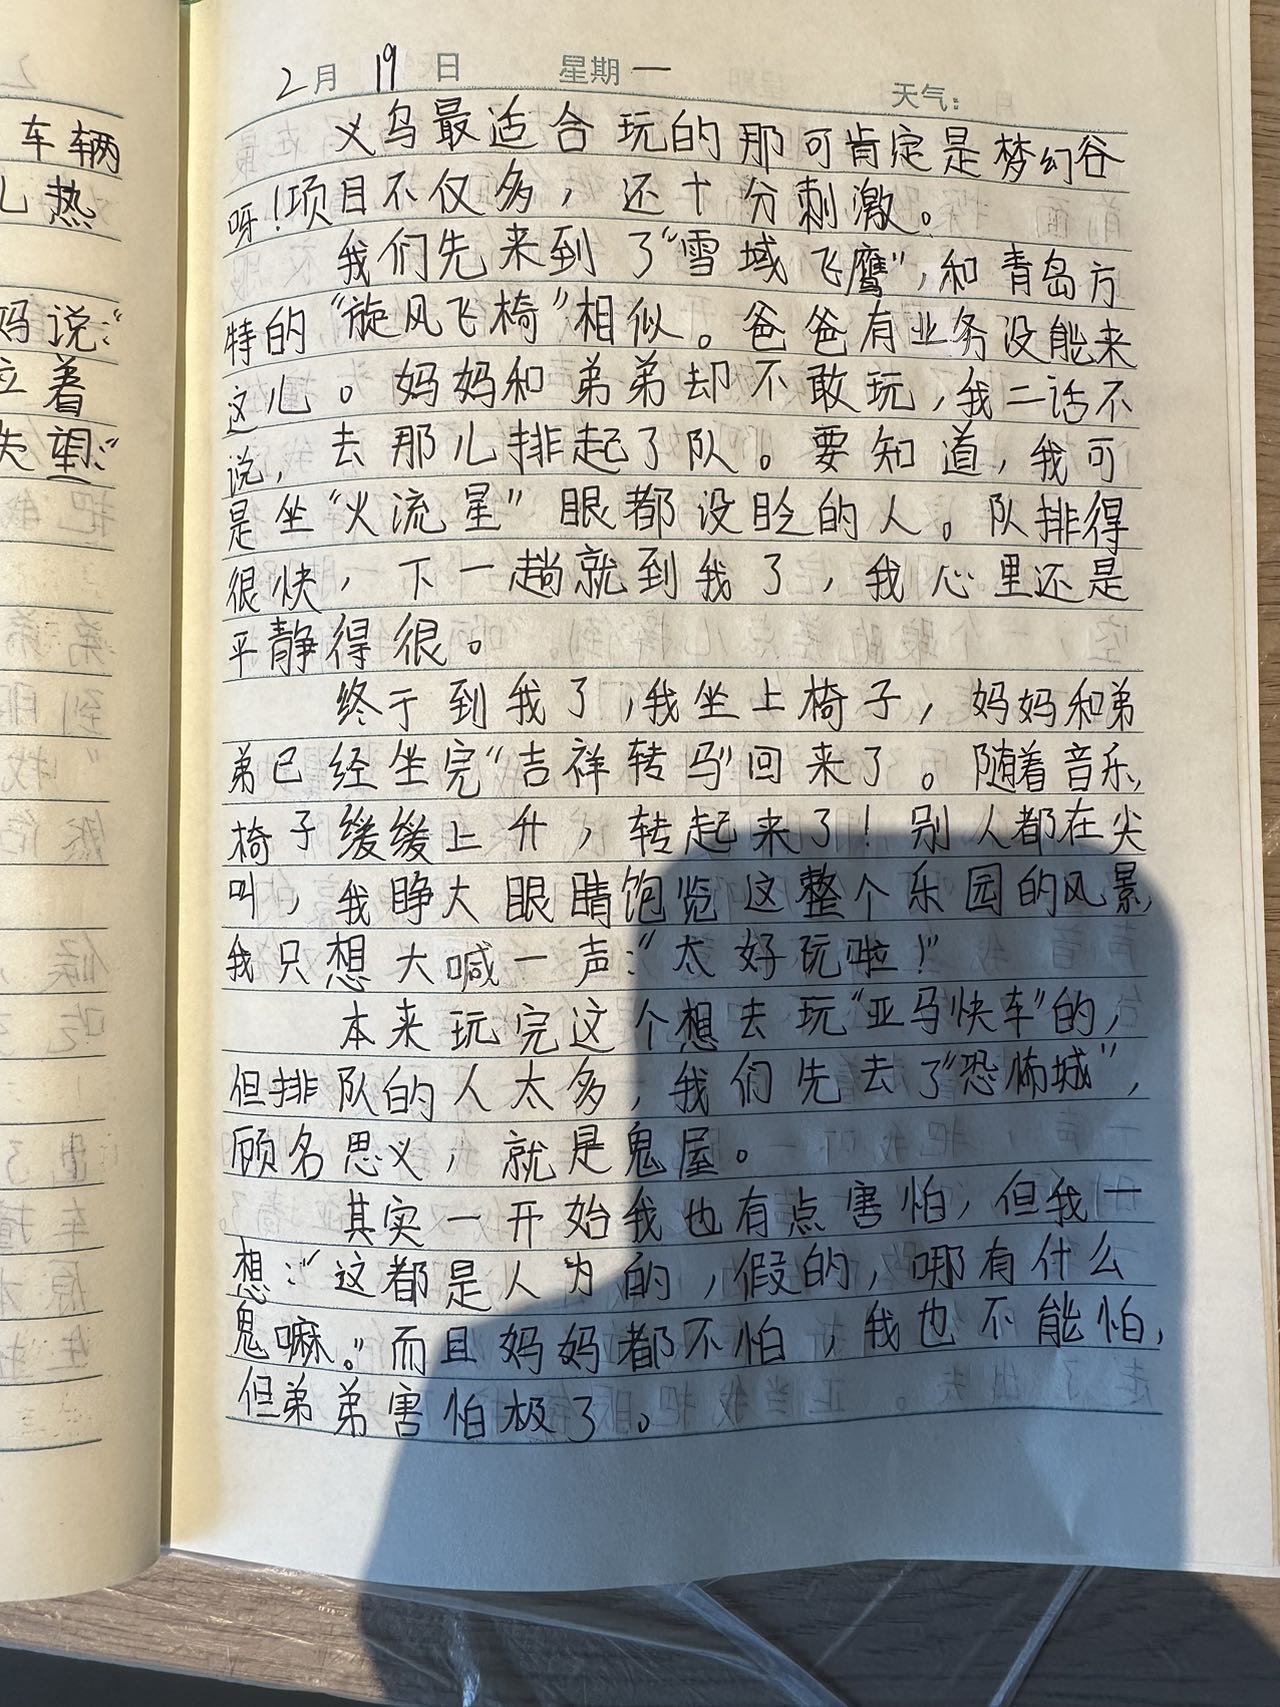 车辆
儿热
妈说：“
立着
失望：“
2月 19日 星期一 天气：
义乌最适合玩的那可肯定是梦幻谷
呀！项目不仅多，还十分刺激。
我们先来到了“雪域飞鹰”，和青岛方
特的“旋风飞椅”相似。爸爸有业务没能来
这儿。妈妈和弟弟却不敢玩，我二话不
说，去那儿排起了队。要知道，我可
是坐“火流星”眼都没眨的人。队排得
很快，下一趟就到我了，我心里还是
平静得很。
终于到我了，我坐上椅子，妈妈和弟
弟已经坐完“吉祥转马”回来了。随着音乐，
椅子缓缓上升，转起来了！别人都在尖
叫，我睁大眼睛饱览这整个乐园的风景，
我只想大喊一声：“太好玩啦！”
本来玩完这个想去玩“亚马快车”的，
但排队的人太多，我们先去了“恐怖城”，
顾名思义，就是鬼屋。
其实一开始我也有点害怕，但我一
想：“这都是人为的，假的，哪有什么
鬼嘛。”而且妈妈都不怕，我也不能怕，
但弟弟害怕极了。